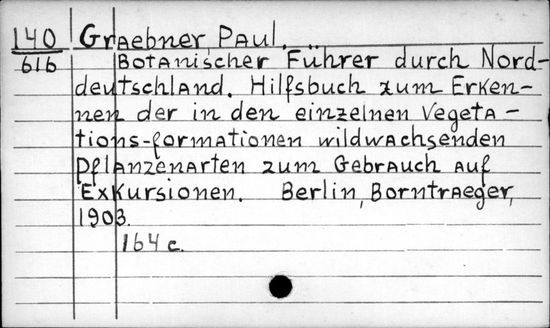 140 Graebner, Paul.
616 Botanischer Führer durch Nord-
deutschland. Hilfsbuch zum Erken-
nen der in den einzelnen Vegeta-
tions-formationen wildwachsenden
Pflanzenarten zum Gebrauch auf
Exkursionen. Berlin, Borntraeger,
1903.
164 c.